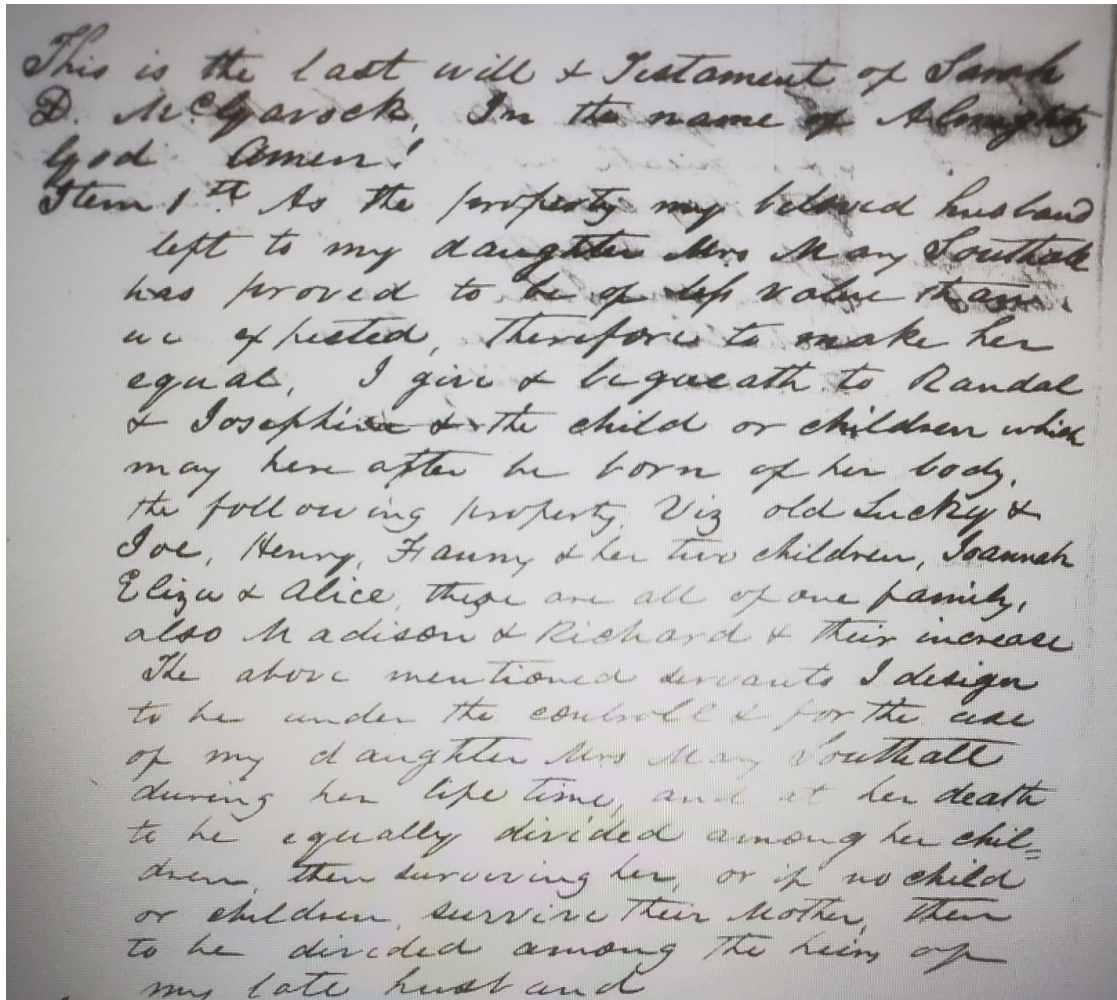 This is the last will & Testament of Sarah
D. McGavock, In the name of Almighty
God Amen!
Item 1st. As the property my beloved husband
left to my daughter Mrs Mary Southall
has proved to be of less value than
we expected, therefore to make her
equal, I give & bequeath to Randal
& Josephine & the child or children which
may here after be born of her body,
the following property, Viz old Lucky &
Joe, Henry, Fanny & her two children, Joannah
Eliza & Alice, these are all of one family,
also Madison & Richard & their increase
The above mentioned servants I design
to be under the controll & for the use
of my daughter Mrs Mary Southall
during her life time, and at her death
to be equally divided among her chil=
dren, then surviving her, or if no child
or children survive their Mother, then
to be divided among the heirs of
my late husband